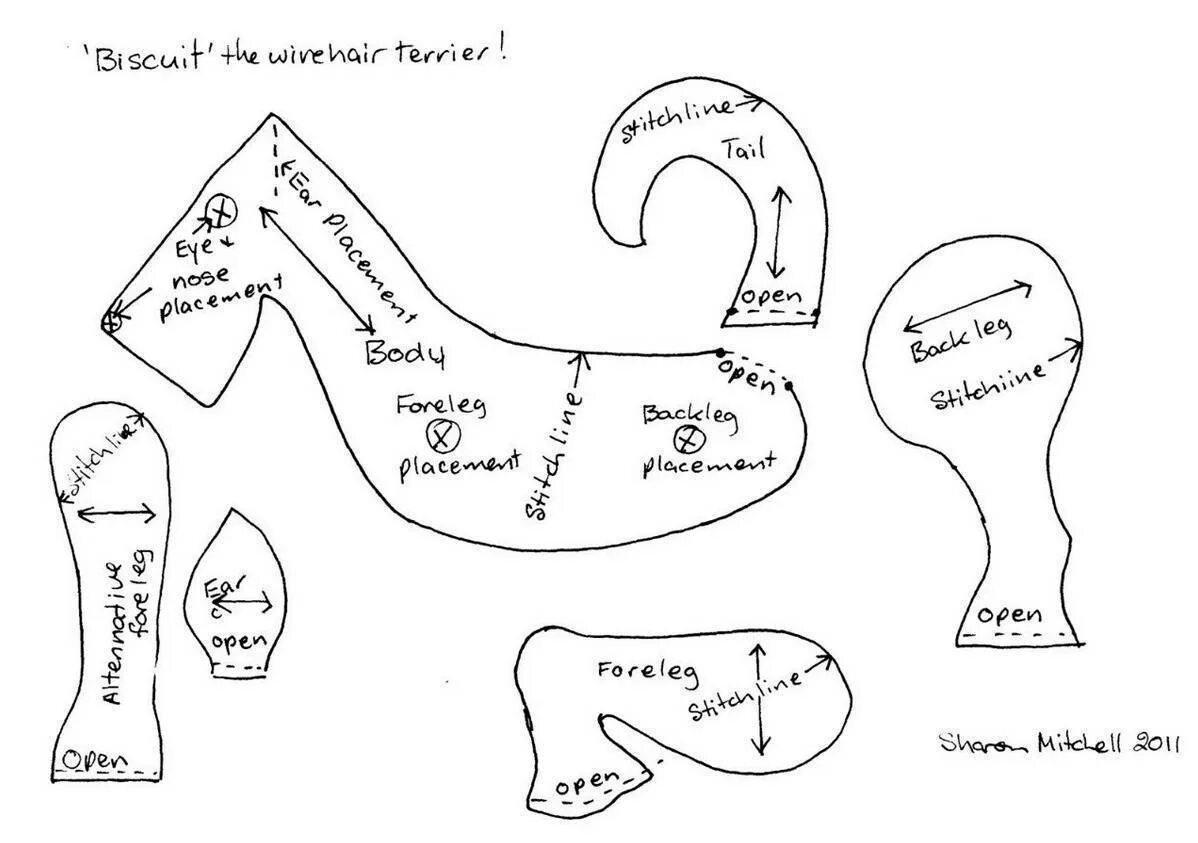 'Biscuit' the wirehair terrier!
Stitchline
Tail
Open
Ear Placement
Eye &
nose
placement
Body
Open
Foreleg
placement
Stitchline
Backleg
placement
Backleg
Stitchline
Open
Stitchline
Alternative
foreleg
Open
Ear
open
Foreleg
Stitchline
Open
Sharon Mitchell 2011